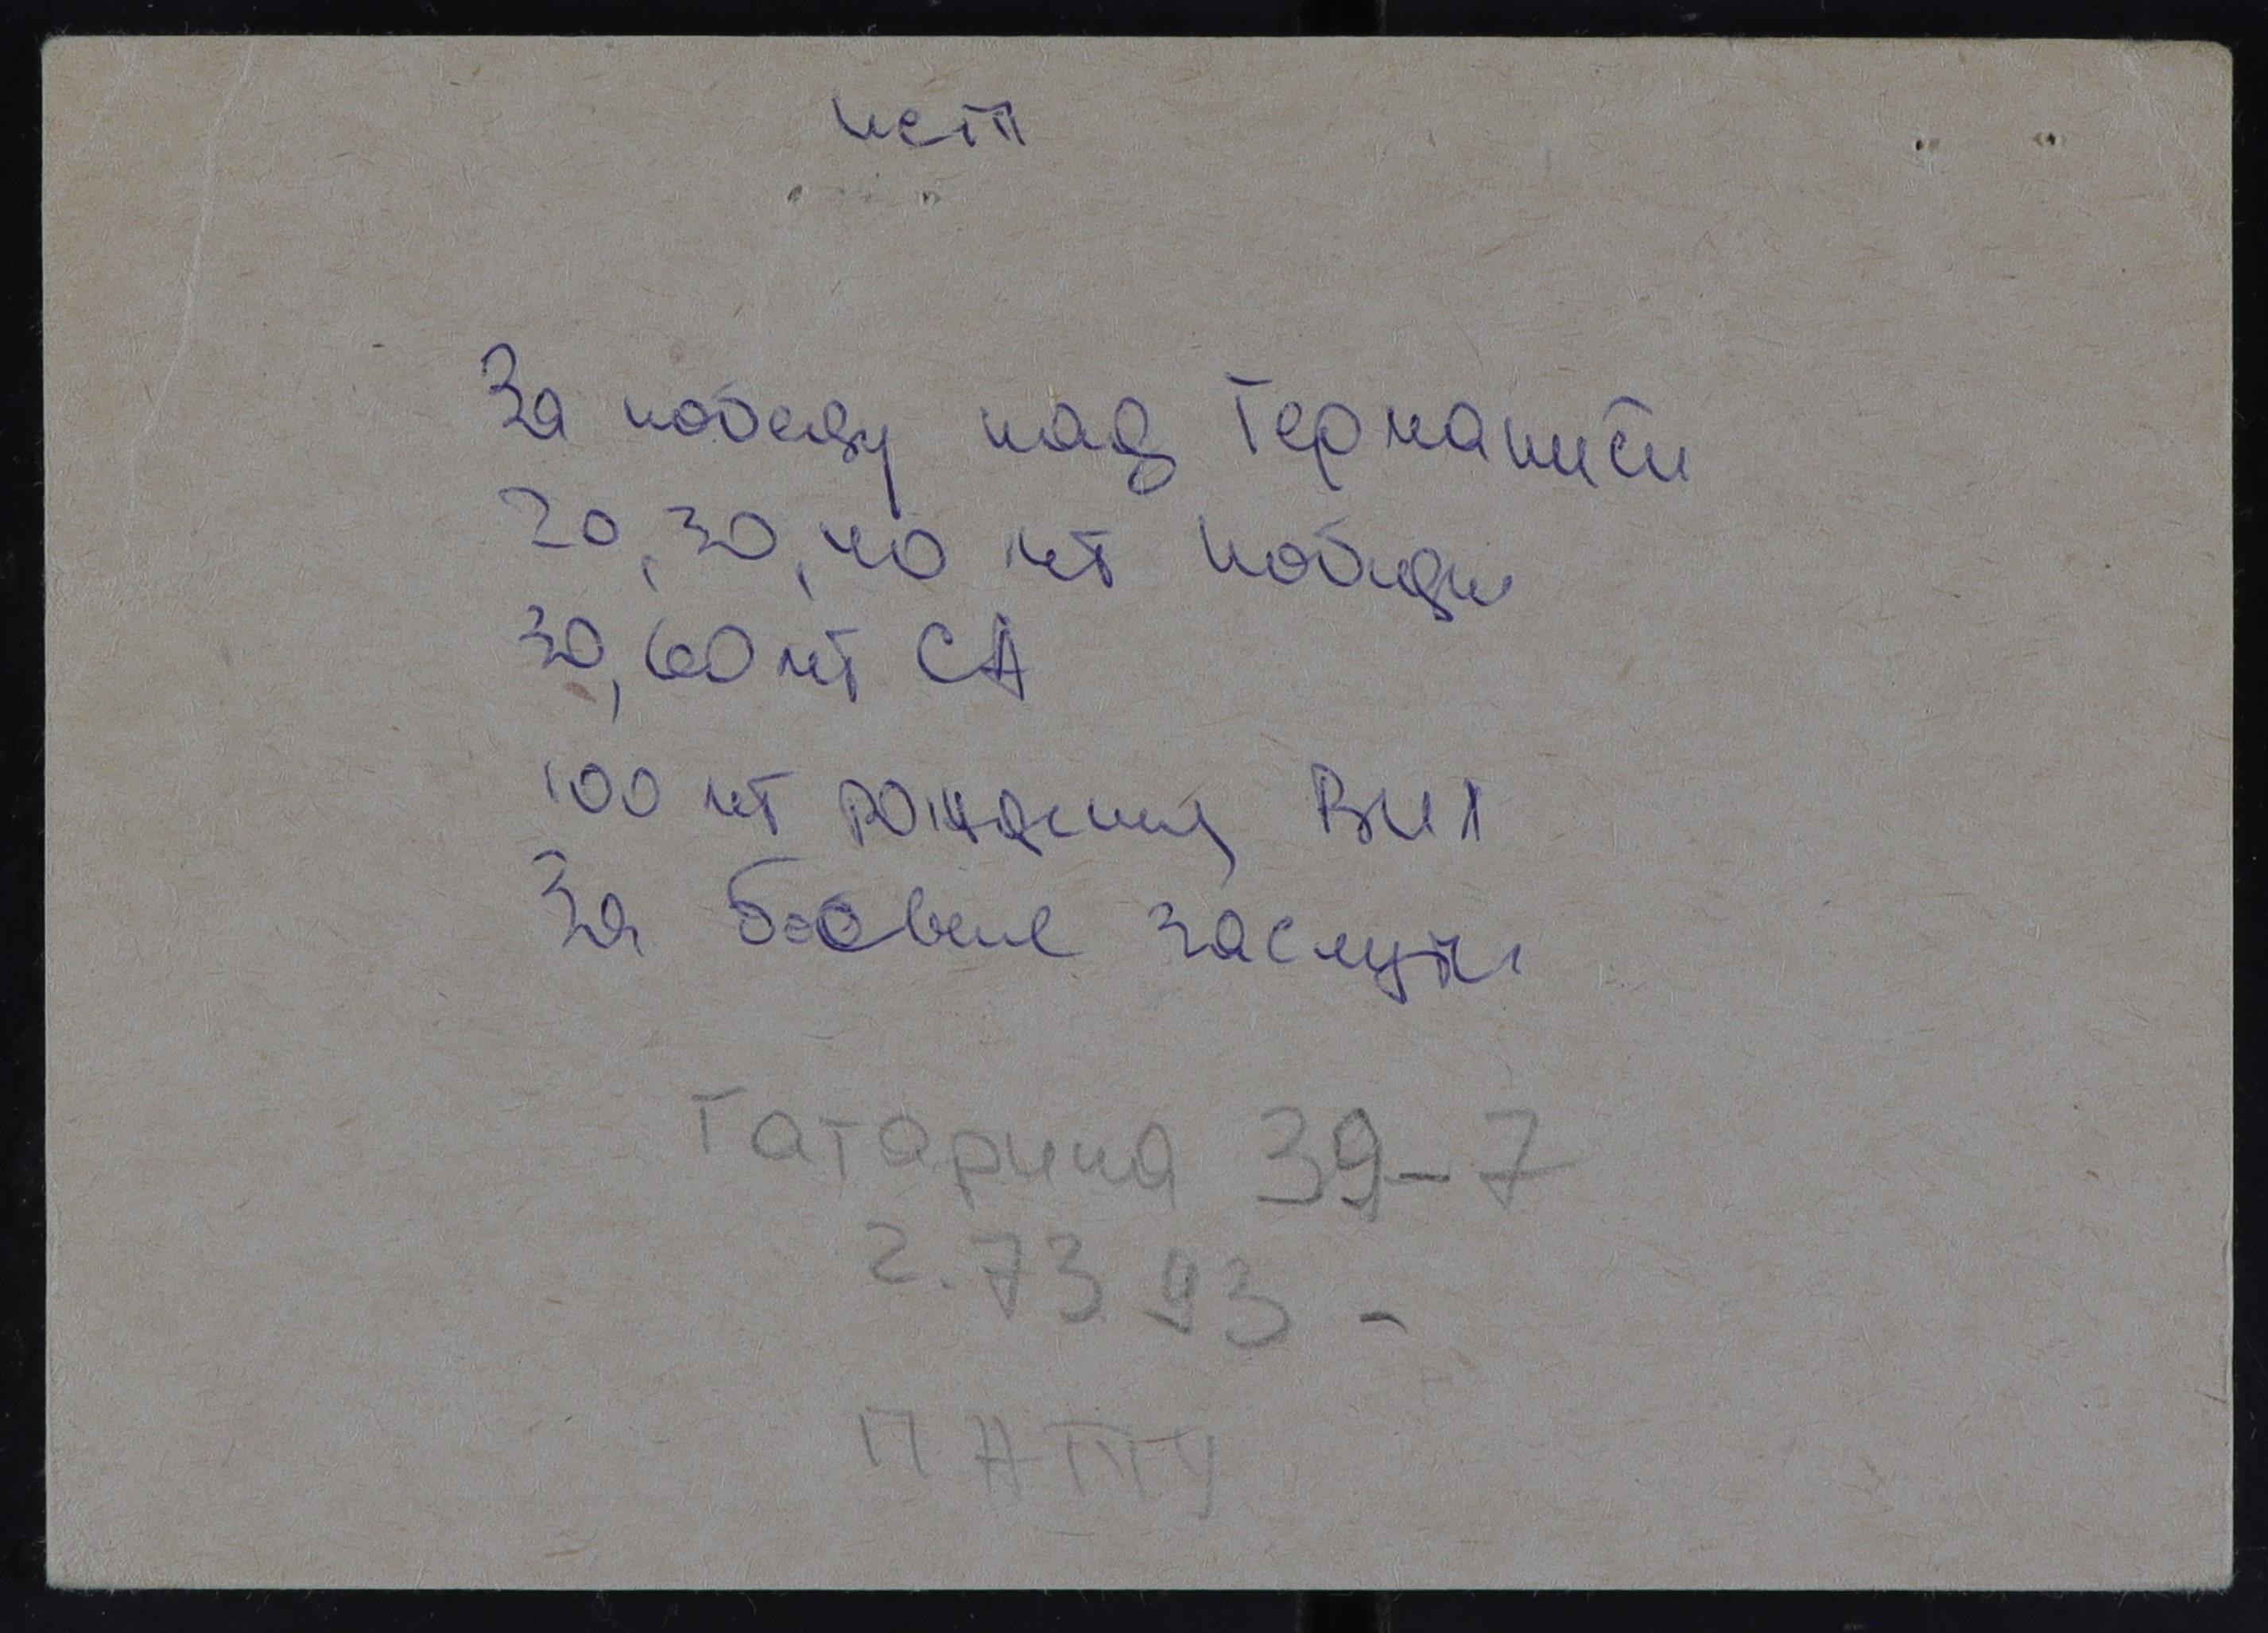 нет
За победу над Германией
20, 30, 40 лет победы
30, 60 лет СА
100 лет рождения ВИЛ
За боевые заслуги
Гагарина 39-7
2.73 93 -